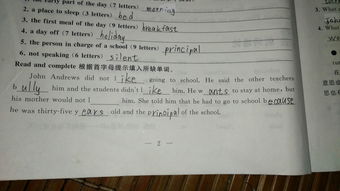 the early part of the day (7 letters) morning
2. a place to sleep (3 letters) bed
3. the first meal of the day (9 letters) breakfast
4. a day off (7 letters) holiday
5. the person in charge of a school (9 letters) principal
6. not speaking (6 letters) silent
Read and complete 根据首字母提示填入所缺单词.
John Andrews did not like going to school. He said the other teachers
bully him and the students didn't like him. He wants to stay at home, but
his mother would not l him. She told him that he had to go to school because
he was thirty-five years old and the principal of the school.
— 2 —
3. What
4. Wha